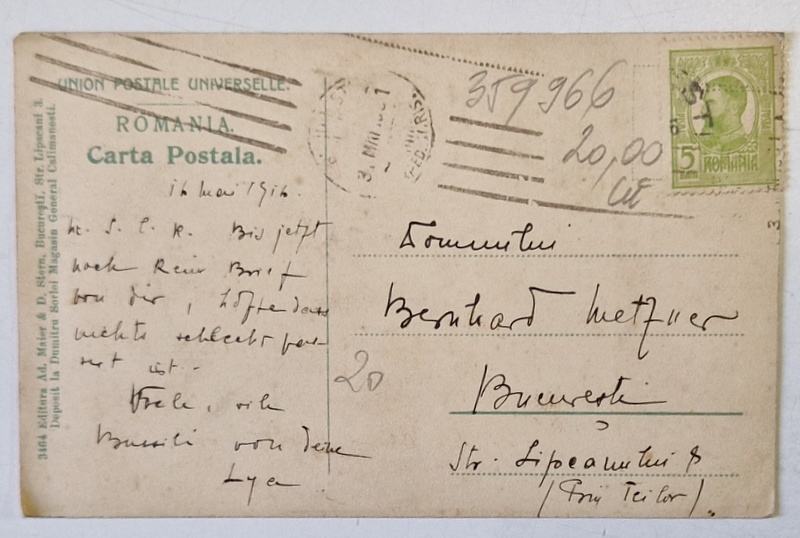 UNION POSTALE UNIVERSELLE.
ROMANIA.
Carta Postala.
3464 Editura Ad. Maier & D. Stern, Bucureşti, Str. Lipscani 3.
Deposit la Dumitru Sorloi Magasin General Calimanesti.
359966
20,00
5 ROMANIA 5
16 Mai 1916.
M. S. L. K. Bis jetzt
noch kein Brief
von dir, hoffe dass
nichts schlecht pas-
sirt ist.
Viele, viele
Bussili von deine
Lya
20
Domnului
Bernhard Metzner
Bucureşti
Str. Lipscanului 8
(Prin Teilor)